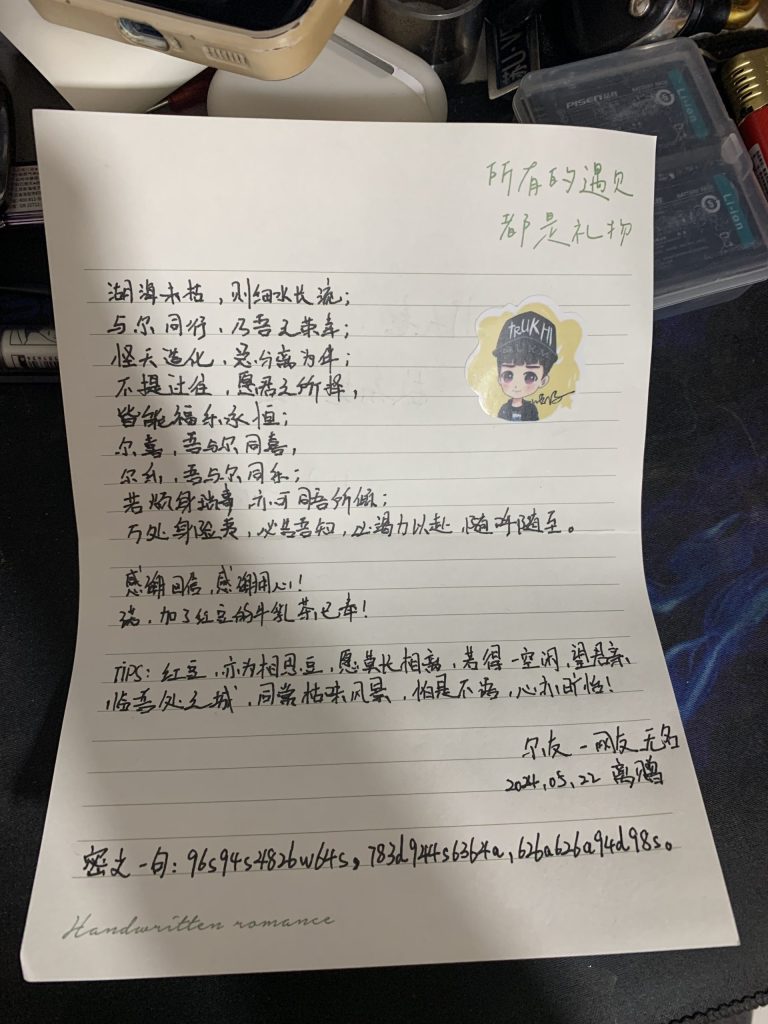 PISEN品胜
Li-ion
Li-ion
所有的遇见
都是礼物
TRUKHI
湖海未枯，则细水长流；
与尔同行，乃吾之荣幸；
怪天造化，总分离为伴；
不提过往，愿君之所择，
皆能福乐永恒；
尔喜，吾与尔同喜，
尔乐，吾与尔同乐；
若烦身琐事 亦可同吾所倾；
万处身险夷，必告吾知，必竭力以赴，随呼随至。
感谢回信，感谢用心！
加了红豆的牛乳茶已奉！
TIPS：红豆，亦为相思豆，愿莫长相离，若得一空闲，望君亲
临吾处之城，同赏枯荣风景，怕是不老，心亦旷怡！
尔友－网友无名
2024.05.22 离赠
密文一句：96s94s2482bw64s，783d944s6364a，626a626a94d98s。
Handwritten romance